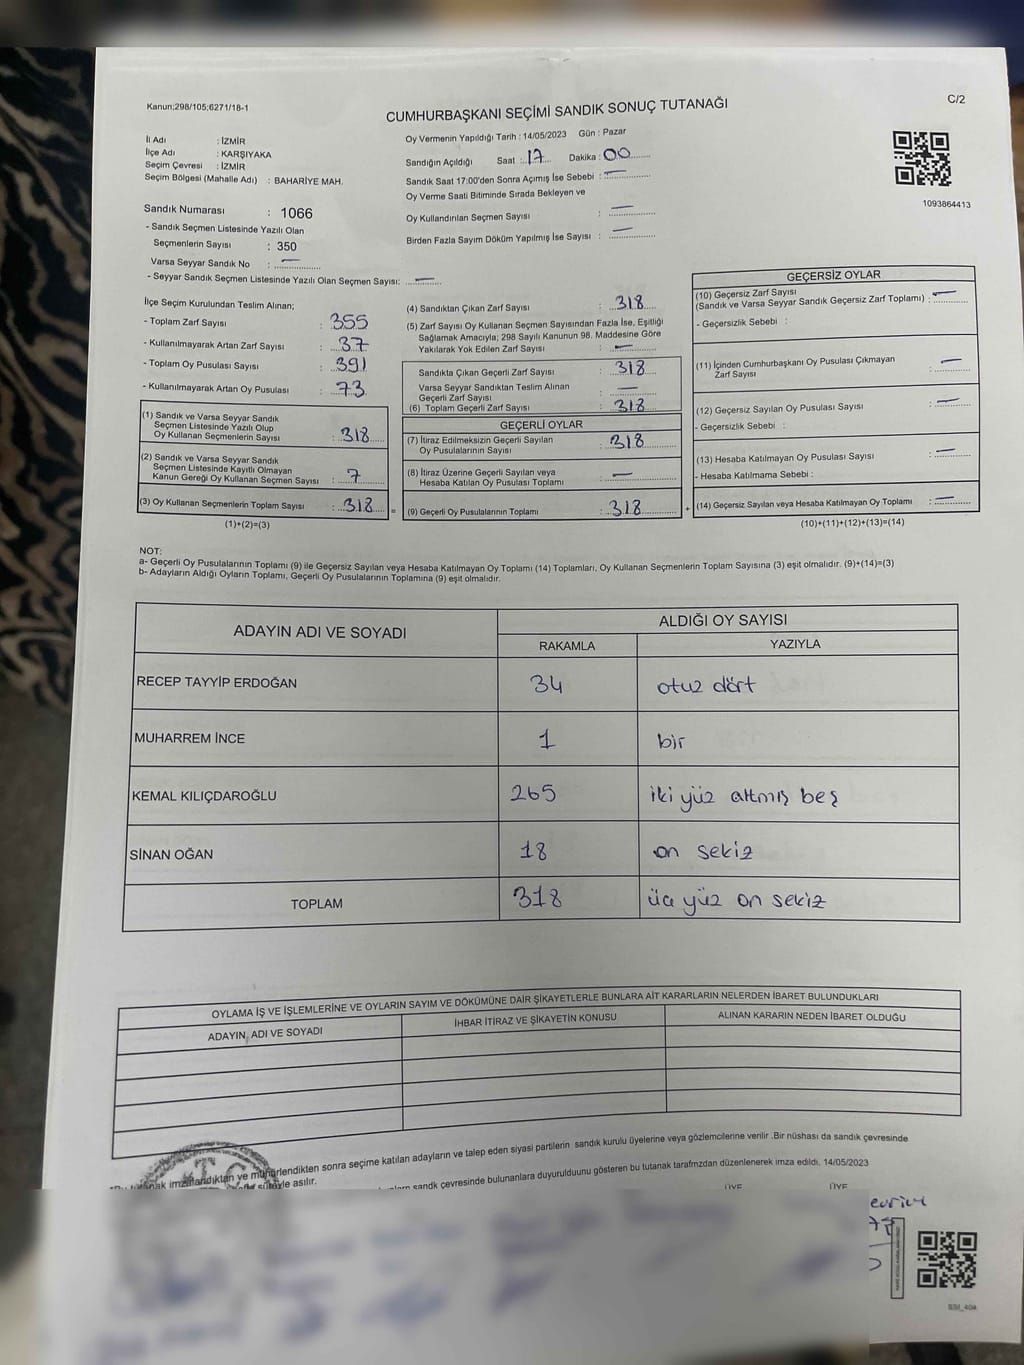 Kanun;298/105;6271/18-1
CUMHURBAŞKANI SEÇİMİ SANDIK SONUÇ TUTANAĞI
C/2
İl Adı : İZMİR
İlçe Adı : KARŞIYAKA
Seçim Çevresi : İZMİR
Seçim Bölgesi (Mahalle Adı) : BAHARİYE MAH.
Sandık Numarası : 1066
- Sandık Seçmen Listesinde Yazılı Olan
Seçmenlerin Sayısı : 350
Varsa Seyyar Sandık No : —
- Seyyar Sandık Seçmen Listesinde Yazılı Olan Seçmen Sayısı: —
Oy Vermenin Yapıldığı Tarih : 14/05/2023 Gün : Pazar
Sandığın Açıldığı Saat : 17 Dakika : 00
Sandık Saat 17:00'den Sonra Açımış İse Sebebi : —
Oy Verme Saati Bitiminde Sırada Bekleyen ve
Oy Kullandırılan Seçmen Sayısı : —
Birden Fazla Sayım Döküm Yapılmış İse Sayısı : —
1093864413
İlçe Seçim Kurulundan Teslim Alınan;
- Toplam Zarf Sayısı : 355
- Kullanılmayarak Artan Zarf Sayısı : 37
- Toplam Oy Pusulası Sayısı : 391
- Kullanılmayarak Artan Oy Pusulası : 73
(1) Sandık ve Varsa Seyyar Sandık
Seçmen Listesinde Yazılı Olup
Oy Kullanan Seçmenlerin Sayısı : 318
(2) Sandık ve Varsa Seyyar Sandık
Seçmen Listesinde Kayıtlı Olmayan
Kanun Gereği Oy Kullanan Seçmen Sayısı : 7
(3) Oy Kullanan Seçmenlerin Toplam Sayısı : 318 =
(1)+(2)=(3)
(4) Sandıktan Çıkan Zarf Sayısı : 318
(5) Zarf Sayısı Oy Kullanan Seçmen Sayısından Fazla İse, Eşitliği
Sağlamak Amacıyla; 298 Sayılı Kanunun 98. Maddesine Göre
Yakılarak Yok Edilen Zarf Sayısı : —
Sandıkta Çıkan Geçerli Zarf Sayısı : 318
Varsa Seyyar Sandıktan Teslim Alınan
Geçerli Zarf Sayısı : —
(6) Toplam Geçerli Zarf Sayısı : 318
GEÇERLİ OYLAR
(7) İtiraz Edilmeksizin Geçerli Sayılan
Oy Pusulalarının Sayısı : 318
(8) İtiraz Üzerine Geçerli Sayılan veya
Hesaba Katılan Oy Pusulası Toplamı : —
(9) Geçerli Oy Pusulalarının Toplamı : 318 +
GEÇERSİZ OYLAR
(10) Geçersiz Zarf Sayısı
(Sandık ve Varsa Seyyar Sandık Geçersiz Zarf Toplamı) : —
- Geçersizlik Sebebi :
(11) İçinden Cumhurbaşkanı Oy Pusulası Çıkmayan
Zarf Sayısı : —
(12) Geçersiz Sayılan Oy Pusulası Sayısı : —
- Geçersizlik Sebebi :
(13) Hesaba Katılmayan Oy Pusulası Sayısı : —
- Hesaba Katılmama Sebebi :
(14) Geçersiz Sayılan veya Hesaba Katılmayan Oy Toplamı : —
(10)+(11)+(12)+(13)=(14)
NOT:
a- Geçerli Oy Pusulalarının Toplamı (9) ile Geçersiz Sayılan veya Hesaba Katılmayan Oy Toplamı (14) Toplamları, Oy Kullanan Seçmenlerin Toplam Sayısına (3) eşit olmalıdır. (9)+(14)=(3)
b- Adayların Aldığı Oyların Toplamı, Geçerli Oy Pusulalarının Toplamına (9) eşit olmalıdır.
ADAYIN ADI VE SOYADI
ALDIĞI OY SAYISI
RAKAMLA YAZIYLA
RECEP TAYYİP ERDOĞAN 34 otuz dört
MUHARREM İNCE 1 bir
KEMAL KILIÇDAROĞLU 265 iki yüz altmış beş
SİNAN OĞAN 18 on sekiz
TOPLAM 318 üç yüz on sekiz
OYLAMA İŞ VE İŞLEMLERİNE VE OYLARIN SAYIM VE DÖKÜMÜNE DAİR ŞİKAYETLERLE BUNLARA AİT KARARLARIN NELERDEN İBARET BULUNDUKLARI
ADAYIN, ADI VE SOYADI İHBAR İTİRAZ VE ŞİKAYETİN KONUSU ALINAN KARARIN NEDEN İBARET OLDUĞU
imzalandıktan ve mühürlendikten sonra seçime katılan adayların ve talep eden siyasi partilerin sandık kurulu üyelerine veya gözlemcilerine verilir .Bir nüshası da sandık çevresinde
asılır.
sandık çevresinde bulunanlara duyurulduunu gösteren bu tutanak tarafmzdan düzenlenerek imza edildi. 14/05/2023
T.C.
ÜYE ÜYE